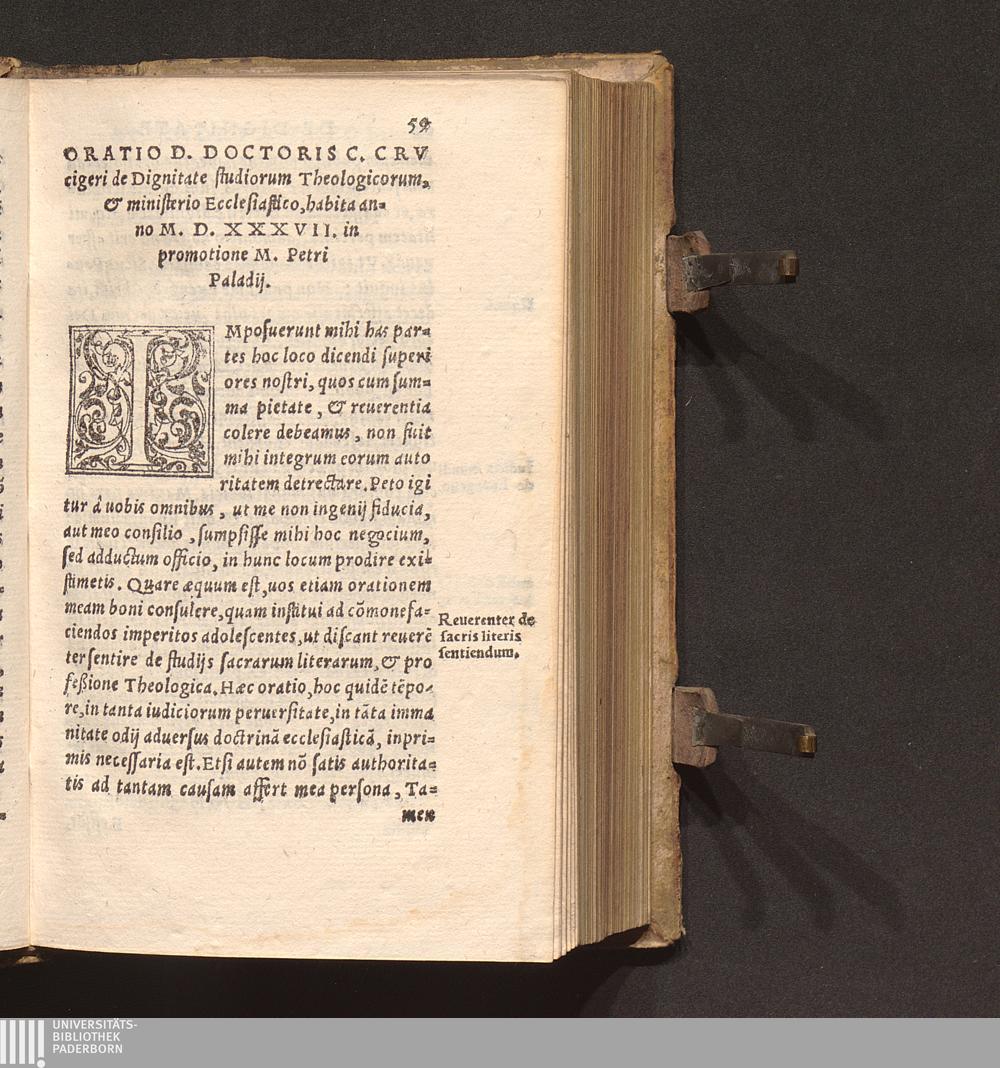 59
ORATIO D. DOCTORIS C. CRV
cigeri de Dignitate ſtudiorum Theologicorum,
& miniſterio Eccleſiaſtico, habita an=
no M. D. XXXVII. in
promotione M. Petri
Paladij.
IMpoſuerunt mihi has par=
tes hoc loco dicendi ſuperi
ores noſtri, quos cum ſum=
ma pietate, & reuerentia
colere debeamus, non fuit
mihi integrum eorum auto
ritatem detrectare. Peto igi
tur à uobis omnibus, ut me non ingenij fiducia,
aut meo conſilio, ſumpſiſſe mihi hoc negocium,
ſed adductum officio, in hunc locum prodire exi=
ſtimetis. Quare æquum eſt, uos etiam orationem
meam boni conſulere, quam inſtitui ad cōmonefa=
ciendos imperitos adoleſcentes, ut diſcant reuerē
ter ſentire de ſtudijs ſacrarum literarum, & pro
feßione Theologica. Hæc oratio, hoc quidē tēpo=
re, in tanta iudiciorum peruerſitate, in tāta imma
nitate odij aduerſus doctrinā eccleſiaſticā, inpri=
mis neceſſaria eſt. Etſi autem nō ſatis authorita=
tis ad tantam cauſam affert mea perſona, Ta=
men
Reuerenter de
ſacris literis
ſentiendum.
UNIVERSITÄTS-
BIBLIOTHEK
PADERBORN